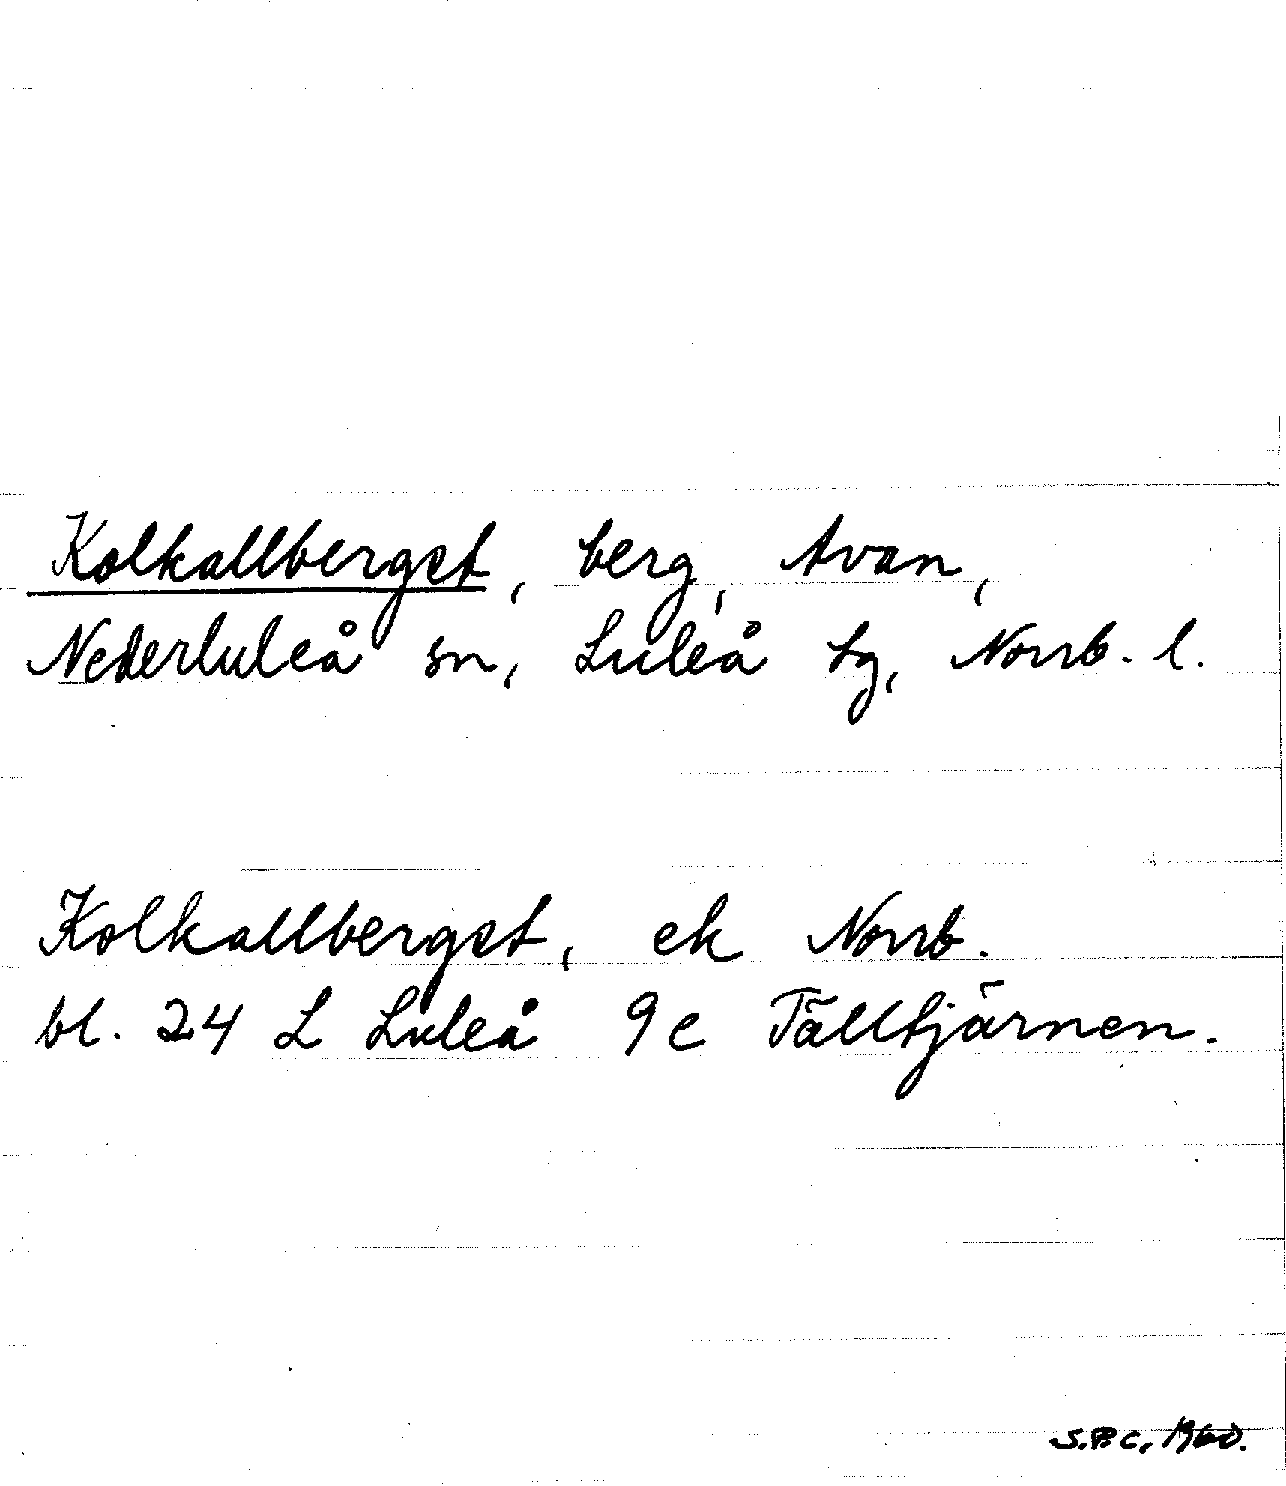 Kolkallberget, berg, Avan,
Nederluleå sn, Luleå tg, Norrb. l.
Kolkallberget, ek Norrb.
bl. 24 L Luleå 9c Tälltjärnen.
S.B.C. 1960.